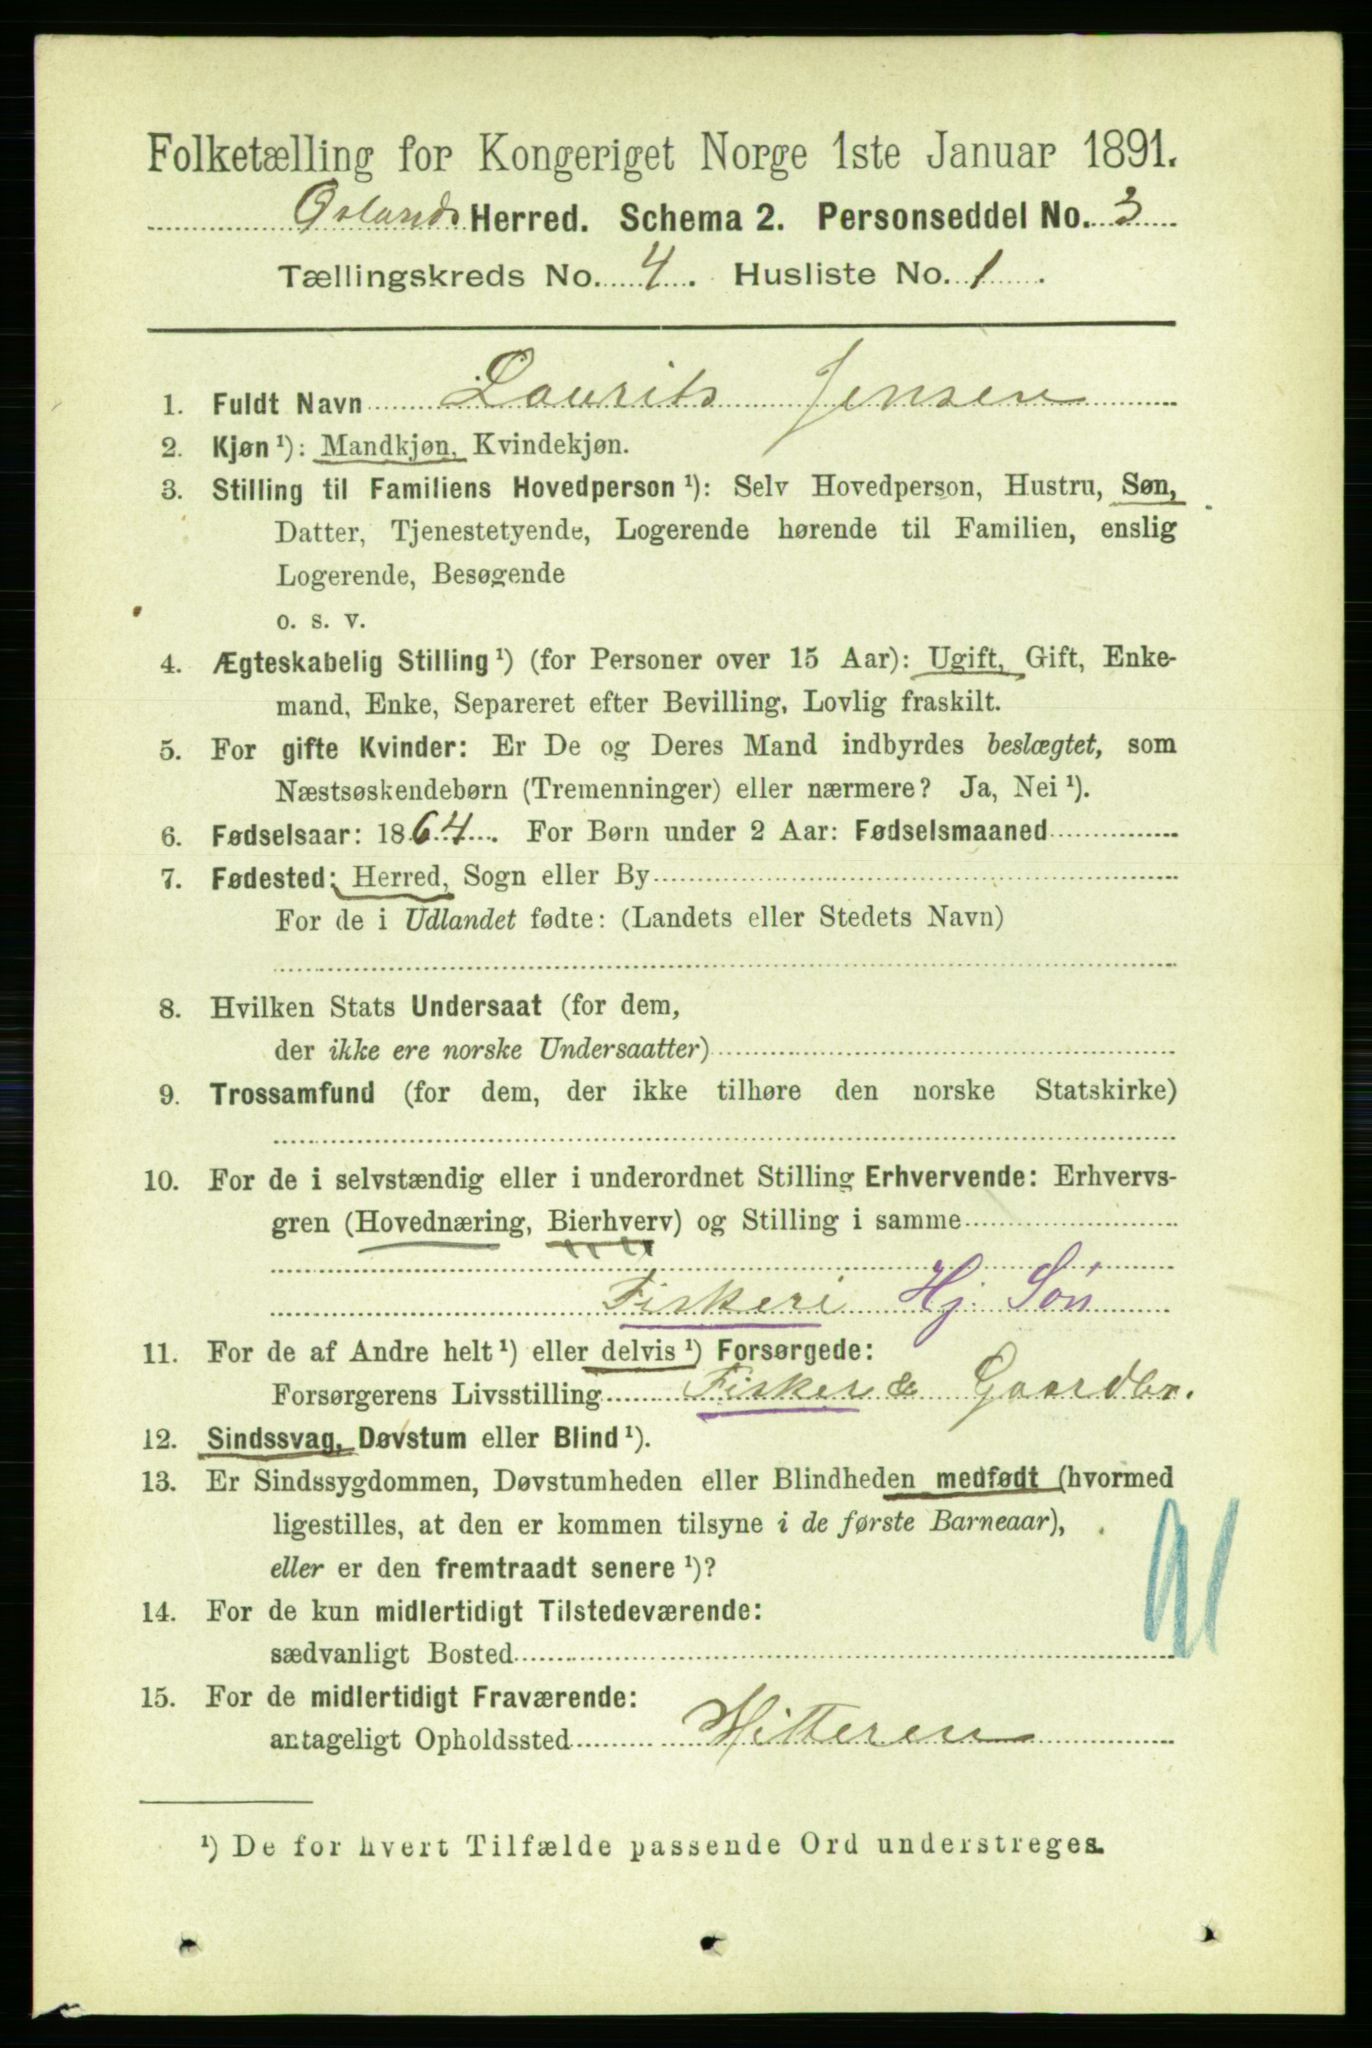 Folketælling for Kongeriget Norge 1ste Januar 1891.
Ørlands Herred. Schema 2. Personseddel No. 3
Tællingskreds No. 4. Husliste No. 1.
1. Fuldt Navn Laurits Jensen
2. Kjøn ¹): Mandkjøn, Kvindekjøn.
3. Stilling til Familiens Hovedperson ¹): Selv Hovedperson, Hustru, Søn,
Datter, Tjenestetyende, Logerende hørende til Familien, enslig
Logerende, Besøgende
o. s. v.
4. Ægteskabelig Stilling ¹) (for Personer over 15 Aar): Ugift, Gift, Enke-
mand, Enke, Separeret efter Bevilling, Lovlig fraskilt.
5. For gifte Kvinder: Er De og Deres Mand indbyrdes beslægtet, som
Næstsøskendebørn (Tremenninger) eller nærmere? Ja, Nei ¹).
6. Fødselsaar: 1864. For Børn under 2 Aar: Fødselsmaaned
7. Fødested: Herred, Sogn eller By
For de i Udlandet fødte: (Landets eller Stedets Navn)
8. Hvilken Stats Undersaat (for dem,
der ikke ere norske Undersaatter)
9. Trossamfund (for dem, der ikke tilhøre den norske Statskirke)
10. For de i selvstændig eller i underordnet Stilling Erhvervende: Erhvervs-
gren (Hovednæring, Bierhverv) og Stilling i samme
Fiskeri Hj. Søn
11. For de af Andre helt ¹) eller delvis ¹) Forsørgede:
Forsørgerens Livsstilling Fisker & Gaardbr.
12. Sindssvag, Døvstum eller Blind ¹).
13. Er Sindssygdommen, Døvstumheden eller Blindheden medfødt (hvormed
ligestilles, at den er kommen tilsyne i de første Barneaar),
eller er den fremtraadt senere ¹)?
91
14. For de kun midlertidigt Tilstedeværende:
sædvanligt Bosted
15. For de midlertidigt Fraværende:
antageligt Opholdssted Hitteren
¹) De for hvert Tilfælde passende Ord understreges.